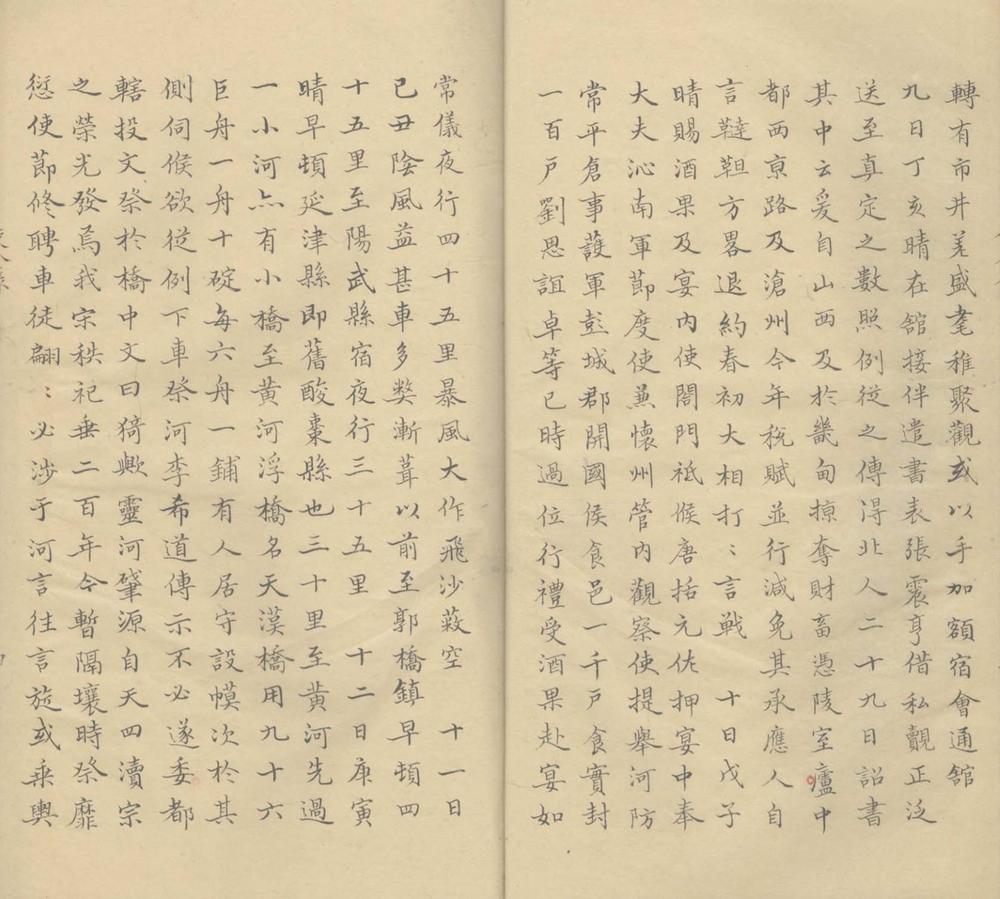 轉有市井差盛耄稚聚觀或以手加額宿會通舘
九日丁亥晴在舘接伴遣書表張震亨借私覿正泛
送至真定之數照例從之傳淂北人二十九日詔書
其中云爰自山西及於畿甸掠奪財畜憑陵室廬中
都西京路及滄州今年稅賦並行減免其承應人自
言韃靼方畧退約春初大相打〻言戰　十日戊子
晴賜酒果及宴内使閤門祗候唐括元佐押宴中奉
大夫沁南軍節度使兼懷州管内觀察使提舉河防
常平倉事護軍彭城郡開國侯食邑一千戶食實封
一百戶劉思誼卓等巳時過位行禮受酒果赴宴如
常儀夜行四十五里暴風大作飛沙蔽空　十一日
已丑陰風益甚車多獘漸葺以前至郭橋鎮早頓四
十五里至陽武縣宿夜行三十五里　十二日庚寅
晴早頓延津縣即舊酸棗縣也三十里至黄河先過
一小河亦有小橋至黄河浮橋名天漢橋用九十六
巨舟一舟十碇每六舟一鋪有人居守設幙次於其
側伺候欲從例下車祭河李希道傳示不必遂委都
轄投文祭於橋中文曰猗歟靈河肇源自天四瀆宗
之榮光發焉我宗秩祀垂二百年今暫隔壤時祭靡
愆使莭修聘車徒翩〻必涉于河言徃言旋或乗輿